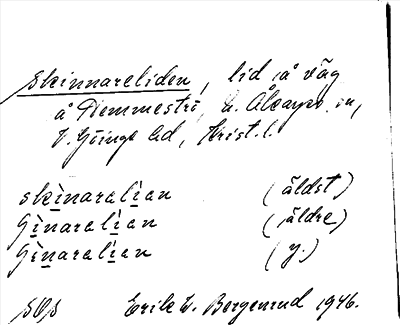 Skinnareliden, lid å väg
å Hemmeströ, N. Åkarps sn,
V. Göinge hd, Krist. l.
skìnaralìan (äldst)
Gìnaralìan (äldre)
Gìnaralìan (y.)
SOS Erik W. Borgenud 1946.